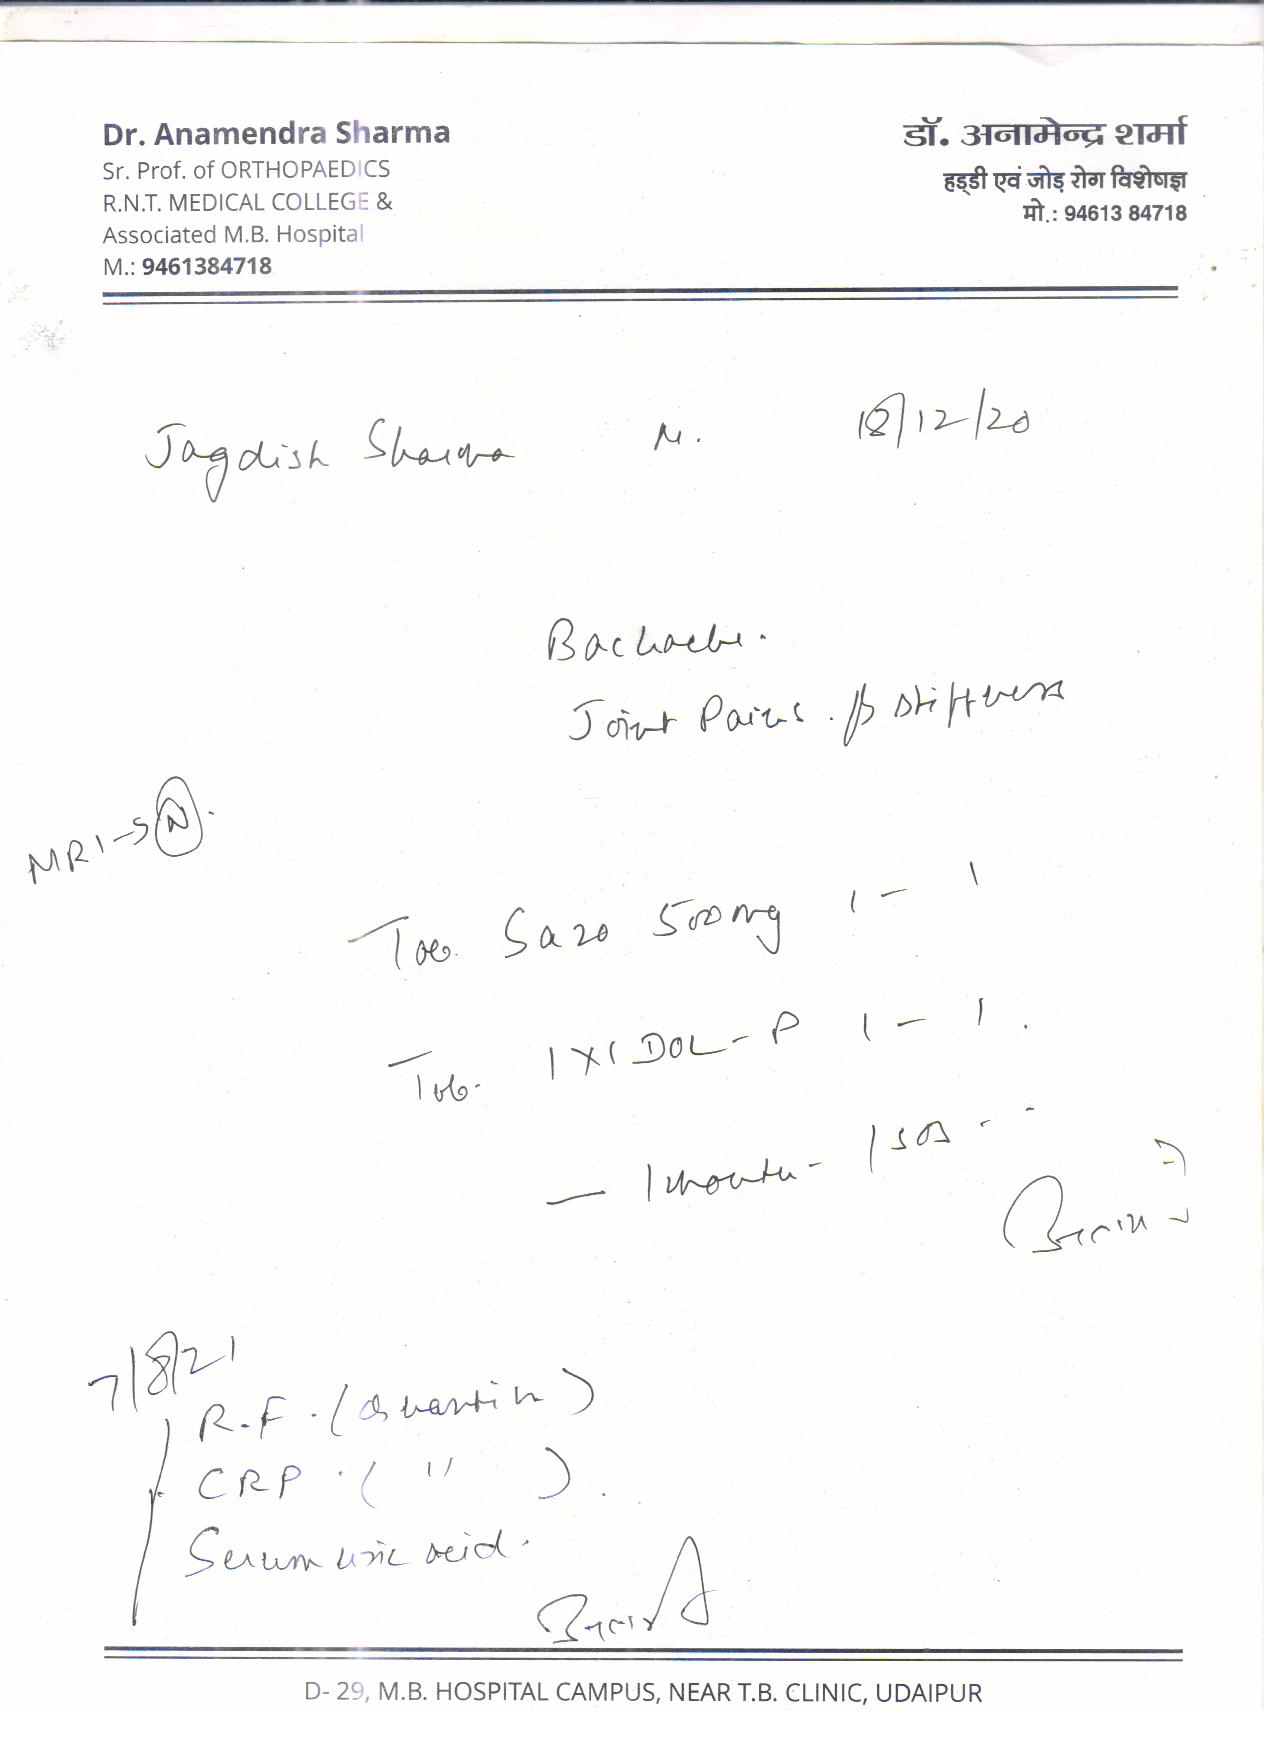 Dr. Anamendra Sharma
Sr. Prof. of ORTHOPAEDICS
R.N.T. MEDICAL COLLEGE &
Associated M.B. Hospital
M.: 9461384718
डॉ. अनामेन्द्र शर्मा
हड्डी एवं जोड़ रोग विशेषज्ञ
मो.: 94613 84718
Jagdish Sharma M. /12/20
Backache.
Joint Pains. stiffness
MRI → N.
Tab. Sazo 500mg 1 - 1
Tab. IXIDOL-P 1 - 1.
— 1 month -
7/8/21
R.F. (Quantin)
CRP. ( " ).
Serum uric acid.
D- 29, M.B. HOSPITAL CAMPUS, NEAR T.B. CLINIC, UDAIPUR